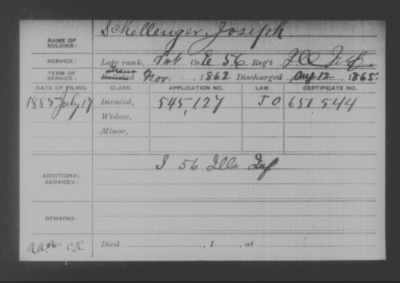 NAME OF SOLDIER: Schellenger, Joseph
SERVICE: Late rank, Pvt Co E 56 Reg't Ill Inf
TERM OF SERVICE: Nov. 1862 Discharged Aug 12, 1865.
DATE OF FILING. CLASS. APPLICATION NO. LAW. CERTIFICATE NO.
1885 July 17 Invalid, 545,127 J O 651,544
Widow,
Minor,
ADDITIONAL SERVICES: I 56 Ills Inf
REMARKS:
Died , 1 , at